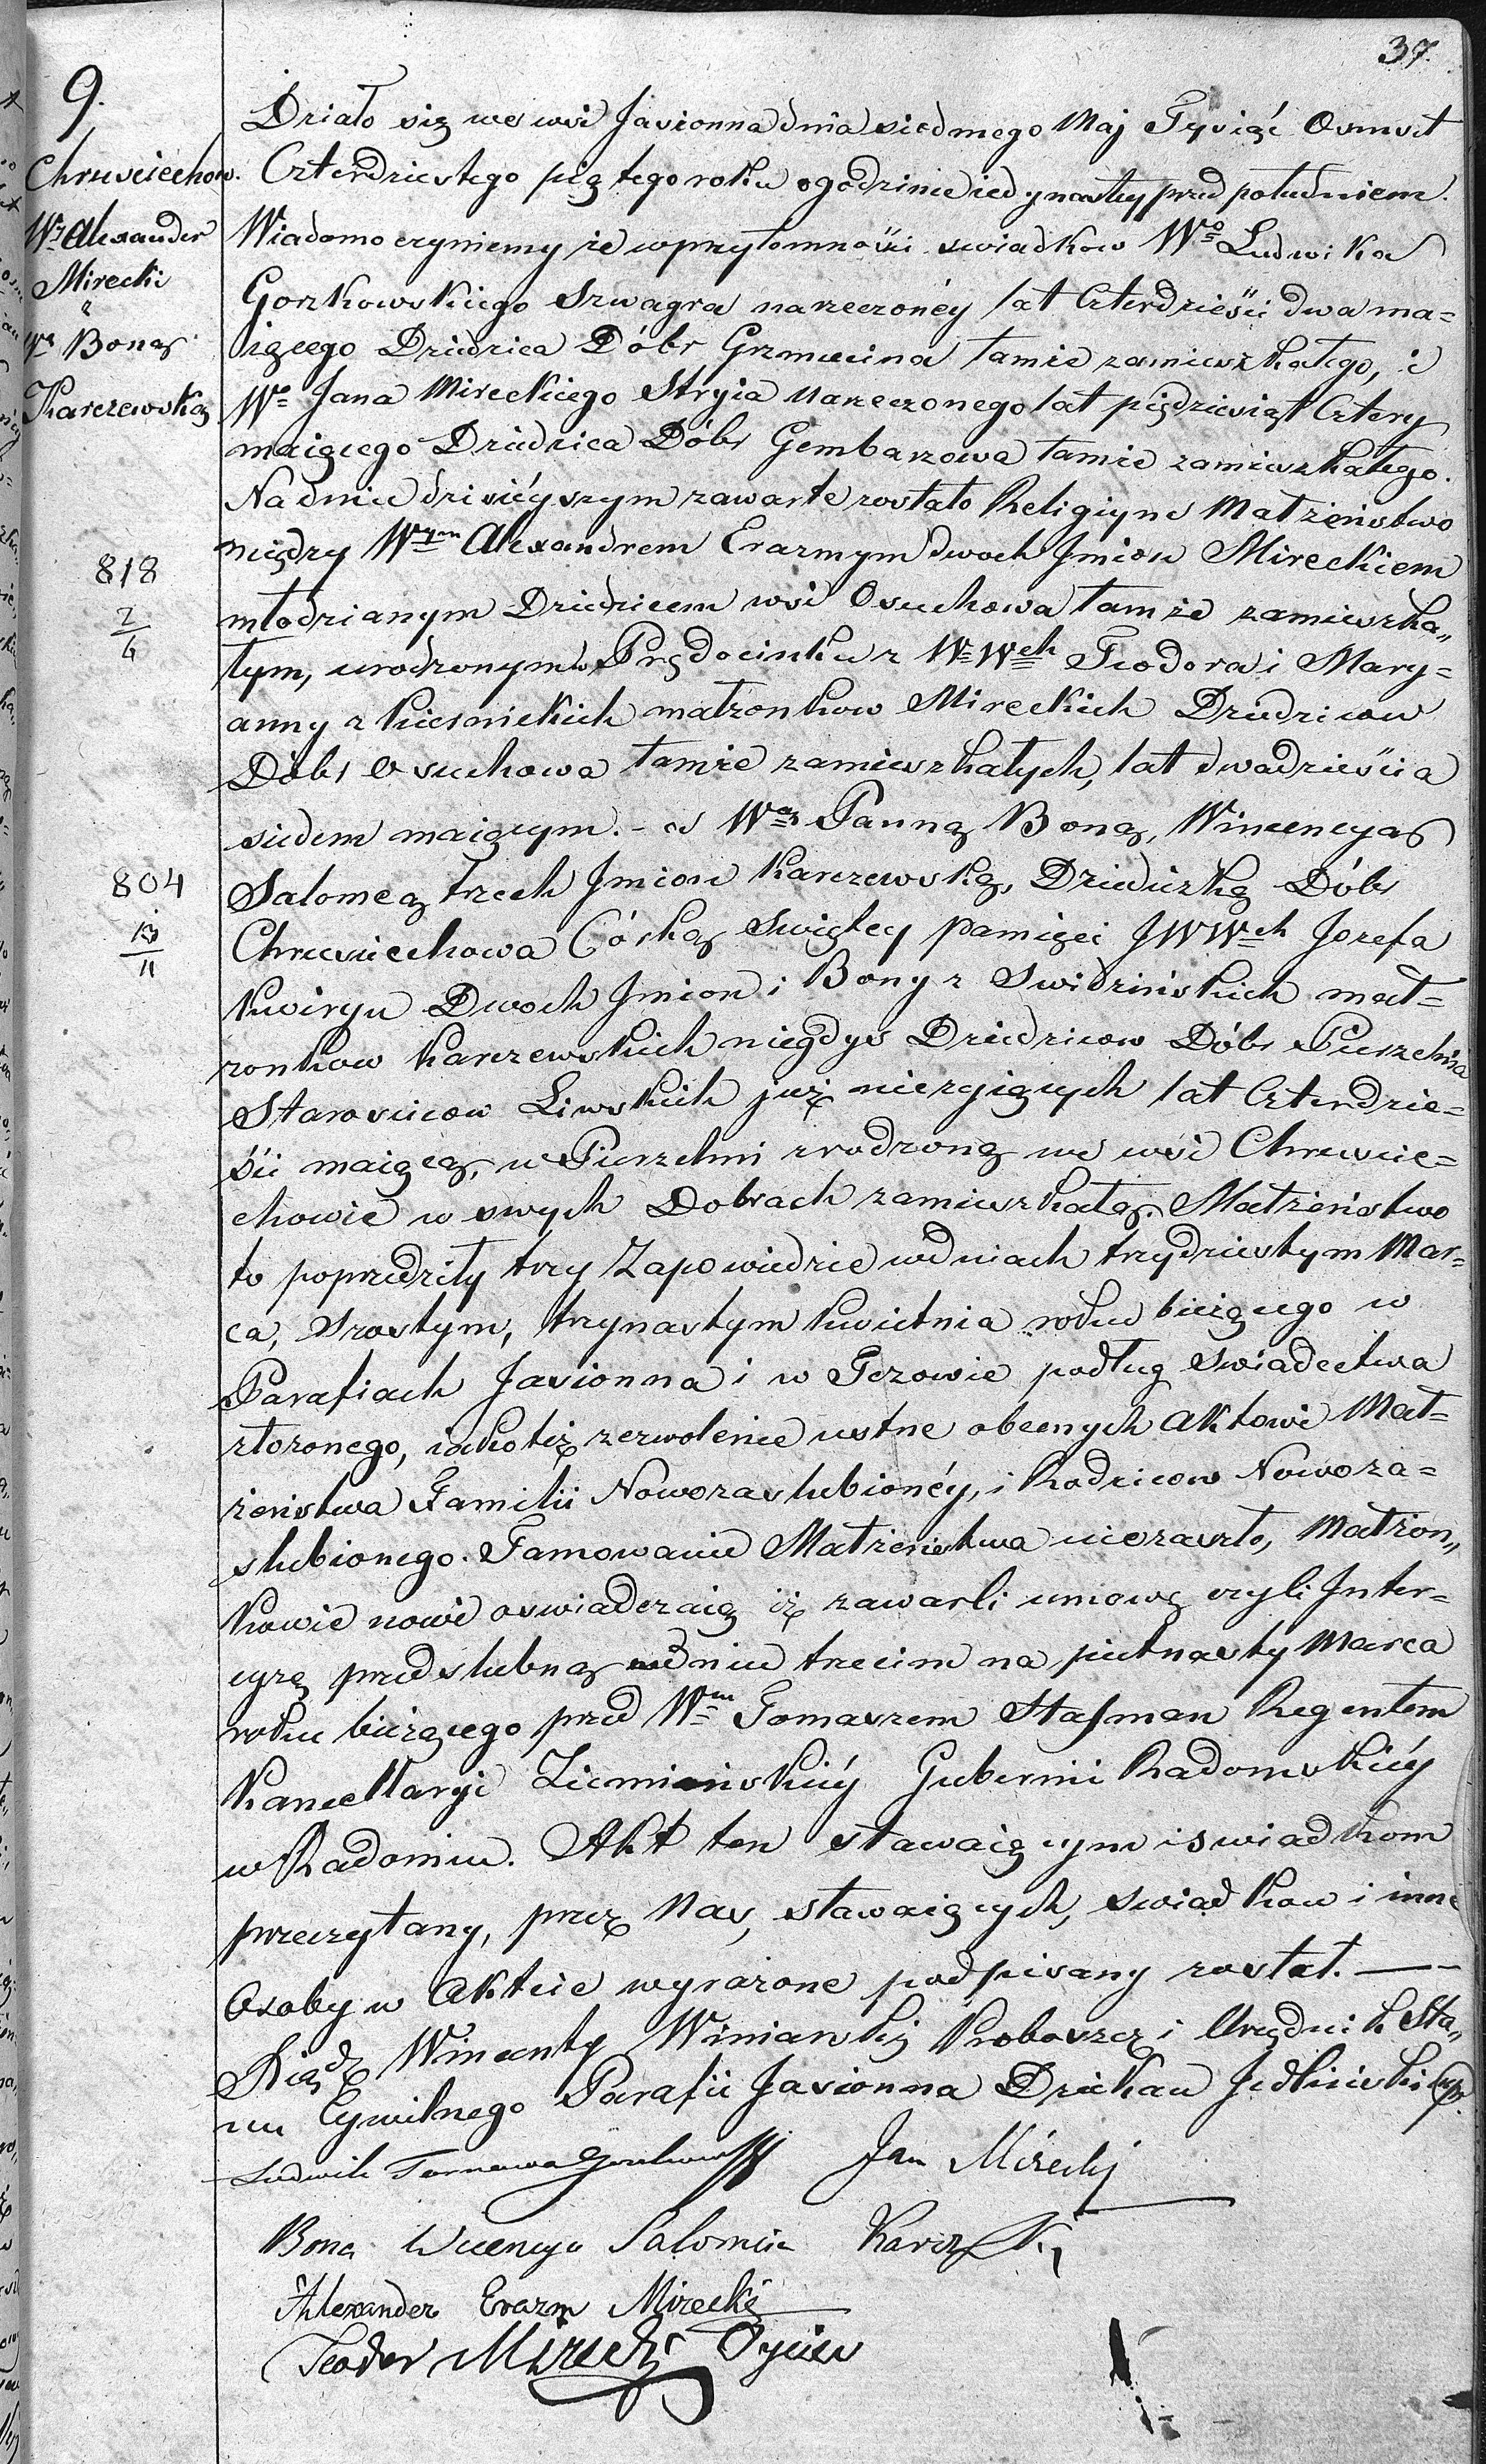 37.
9.
Chruściechow.
Wy Alexander
Mirecki
z
Wą Boną
Karczewską
818
2/6
804
13/11
Działo się we wsi Jasionna dnia siedmego Maj Tysiąć Osmset
Czterdziestego piątego roku o godzinie iedynastey przed południem.
Wiadomo czyniemy że w przytomności swiadkow Wo Ludwika
Gorzkowskiego Szwagra narzeczonéy lat Czterdzieści dwa ma=
iącego Dziedzica Dóbr Grzmucina tamże zamieszkałego, i
Wo Jana Mireckiego Stryia Narzeczonego lat piędziesiąt Cztery
maiącego Dziedzica Dóbr Gembarzowa tamże zamieszkałego.
Na dniu dzisiéyszym zawarte zostało Religiyne Małżeństwo
między Wym Alexandrem Erazmym dwoch Jmion Mireckiem
młodzianym Dziedzicem wsi Osuchowa tamże zamieszka„
łym, urodzonym w Prędocinku z W Wch Teodora i Mary=
anny z Kiesnickich małżonkow Mireckich Dziedzicow
Dóbr Osuchowa tamże zamieszkałych, lat dwadzieścia
siedem maiącym. - a Wą Panną Boną, Wincencyą
Salomeą trzech Jmion Karczewską, Dziedziczką Dóbr
Chruściechowa Córką Swiętey pamięci JWWch Jozefa
Kwiryn Dwoch Jmion i Bony z Swidzińskich mał=
żonkow Karczewskich niegdys Dziedzicow Dóbr Pierzchnia
Starościcow Liwskich już nieżyiących lat Czterdzie=
ści maiącą, w Pierzchni zrodzoną we wsi Chruście=
chowie w swych Dobrach zamieszkałą. Małżeństwo
to poprzedziły trzy Zapowiedzie w dniach trzydziestym Mar=
ca, Szostym, trzynastym Kwietnia roku bieżącego w
Parafiach Jasionna i w Jczowie podług Swiadectwa
złożonego, iako też zezwolenie ustne obecnych aktowi Mał=
żeństwa Familii Nowozaslubionéy, i Rodzicow Nowoza=
slubionego. Tamowanie Małżeństwa nie zaszło, Małżon„
kowie nowi oswiadczaią iż zawarli umowę czyli Inter=
cyzę przedslubną w dniu trzecim na pietnasty Marca
roku bieżącego przed Wm Tomaszem Stafman Regentem
Kancellaryi Ziemiańskiéy Gubernii Radomskiéy
w Radomiu. Akt ten stawaiącym i swiadkom
przeczytany, przez Nas, stawaiących, swiadkow i inne
Osoby w Akcie wyrażone podpisany został. —
Xiądz Wincenty Winiarski Proboszcz i Urzędnik Sta„
nu Cywilnego Parafii Jasionna Dziekan Jedliński
Ludwik Tarnawa Gorzkowski Jan Mirecki
Bona Wicencya Salomeia Karczewska
Alexander Erazm Mirecki
Teodor Mirecki Oyciec